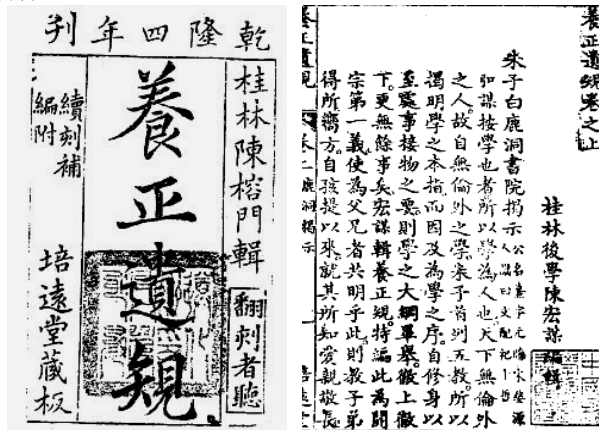 乾隆四年刊
桂林陳榕門輯
翻刻者聽
養正遺規
續刻補
編附
培遠堂藏板
養正遺規卷之上
桂林後學陳宏謀編輯
朱子白鹿洞書院揭示
宏謀按學也者所以學為人也天下無倫外
之人故自無倫外之學朱子首列五教所以
揭明學之本指而因及為學之序自修身以
至處事接物之要則學之大綱畢舉徹上徹
下更無餘事矣宏謀輯養正規特編此為開
宗第一義使為父兄者共明乎此則教子弟
得所嚮方自孩提以來就其所知愛親敬長
養正遺規
卷上
鹿洞揭示